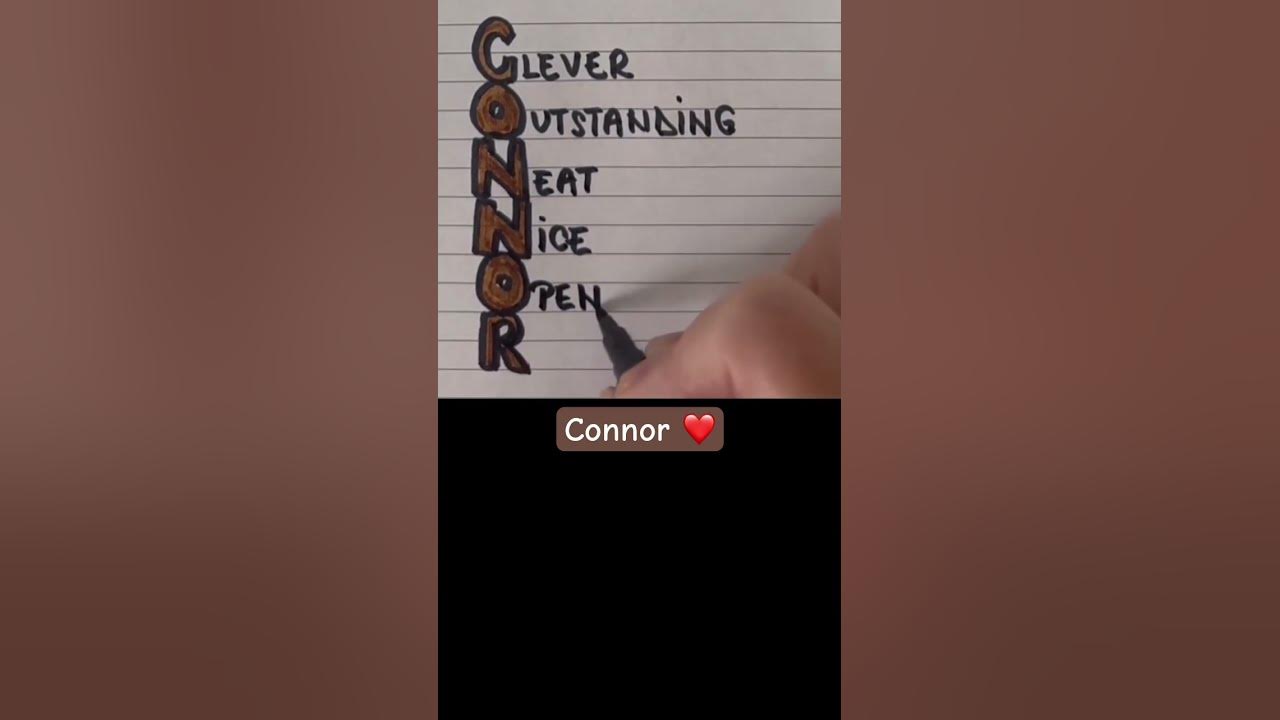 CLEVER
OUTSTANDiNG
NEAT
NiCE
OPEN
R
Connor ❤️